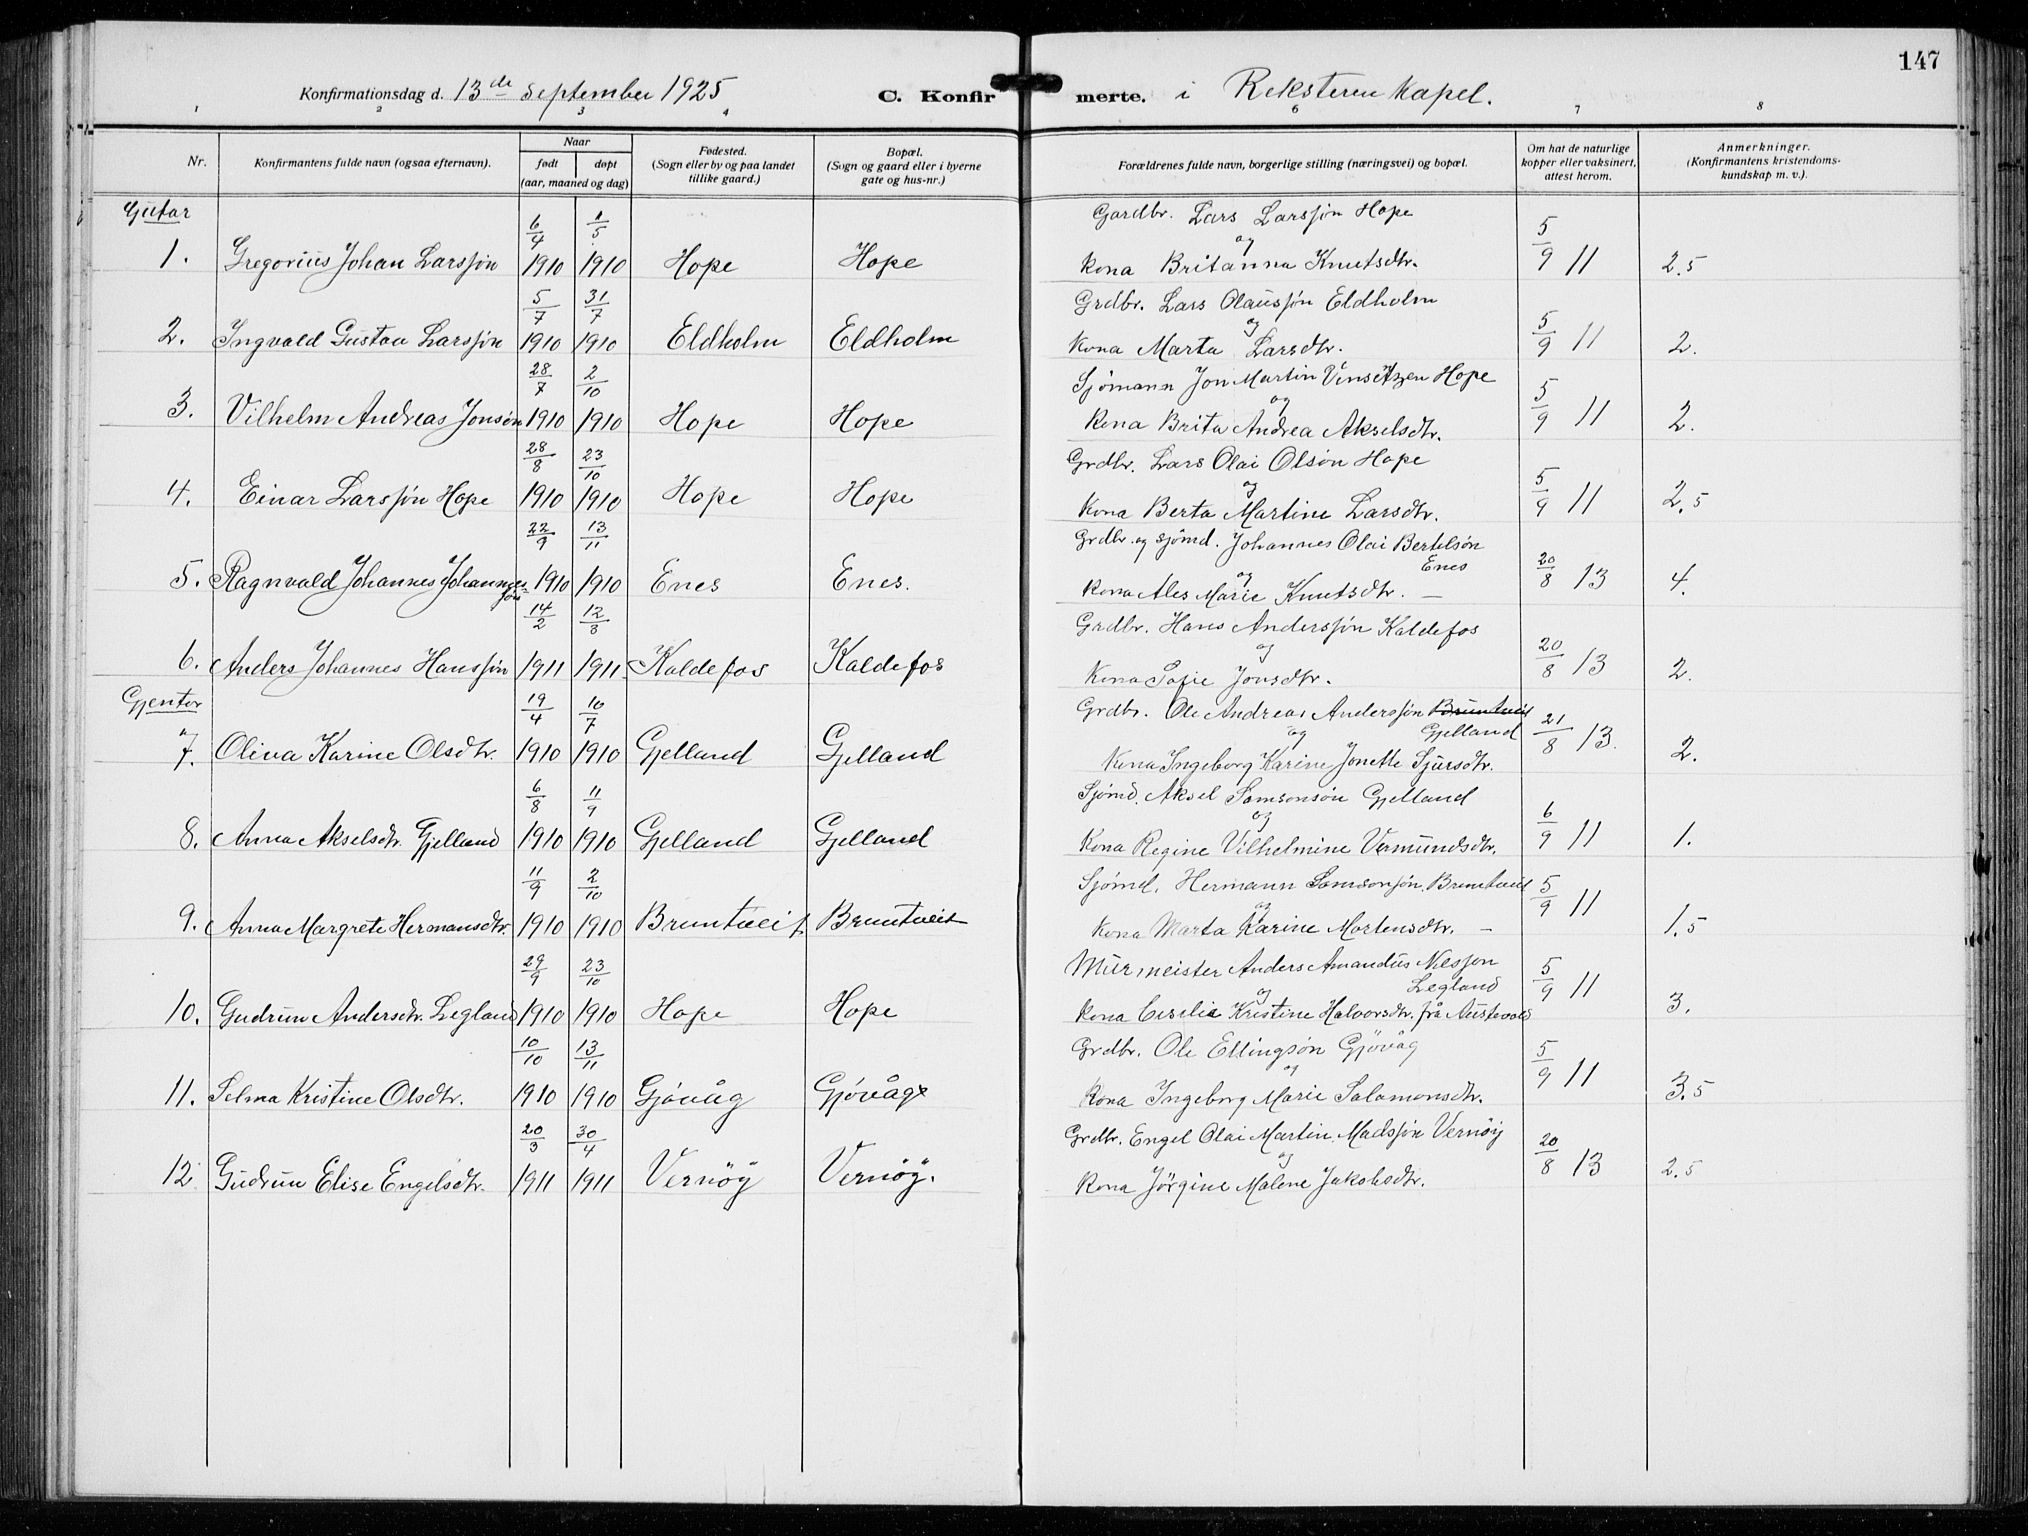 147
Konfirmationsdag d. 13de september 1925 C. Konfirmerte. i Reksteren Kapel.
1 2 3 4 6 7 8
Nr. Konfirmantens fulde navn (ogsaa efternavn). Naar født døpt (aar, maaned og dag) Fødested. (Sogn eller by og paa landet tillike gaard.) Bopæl. (Sogn og gaard eller i byerne gate og hus-nr.) Forældrenes fulde navn, borgerlige stilling (næringsvei) og bopæl. Om hat de naturlige kopper eller vaksinert, attest herom. Anmerkninger. (Konfirmantens kristendomskundskap m. v.).
Gutar
6/4 1/5 Gardbr. Lars Larssjøn Hope
1. Gregorius Johan Larssjøn 1910 1910 Hope Hope og kona Britanna Knutsdtr. 5/9 11 2.5
5/7 31/7 Grdbr. Lars Olaussjøn Eldholm
2. Ingvald Gustav Larssjøn 1910 1910 Eldholm Eldholm og kona Marta Larsdtr. 5/9 11 2.
28/7 2/10 Sjømann Jon Martin Hope
3. Vilhelm Andreas Jonsøn 1910 1910 Hope Hope og kona Brita Andrea Akselsdtr. 5/9 11 2.
28/8 23/10 Grdbr. Lars Olai Olsøn Hope
4. Einar Larssjøn Hope 1910 1910 Hope Hope og kona Berta Martine Larsdtr. 5/9 11 2.5
22/9 13/11 Grdbr. og sjømd. Johannes Olai Bertelsøn Enes
5. Ragnvald Johannes Johannessøn 1910 1910 Enes Enes. og kona Ales Marie Knutsdtr. — 20/8 13 4.
14/2 12/3 Grdbr. Hans Anderssjøn Kaldefos
6. Anders Johannes Hanssjøn 1911 1911 Kaldefos Kaldefos og kona Sofie Jonsdtr. 20/8 13 2.
Gjentor
19/4 10/7 Grdbr. Ole Andreas Anderssjøn Bruntveit Gjelland
7. Oliva Karine Olsdtr. 1910 1910 Gjelland Gjelland og kona Ingeborg Karine Jonette Sjursdtr. 21/8 13. 2.
6/8 11/9 Sjømd. Aksel Samsonsøn Gjelland
8. Anna Akselsdtr. Gjelland 1910 1910 Gjelland Gjelland og kona Regine Vilhelmine Vermundsdtr. 6/9 11 1.
11/9 2/10 Sjømd. Hermann Samsonsjøn Bruntveit
9. Anna Margrete Hermansdtr. 1910 1910 Bruntveit Bruntveit og kona Marta Karine Mortensdtr. — 5/9 11 1.5
29/9 23/10 Murmeister Anders Amandus Nilssen Legland
10. Gudrun Andersdtr. Legland 1910 1910 Hope Hope og kona Cesilie Kristine Halvorsdtr. frå Austevold 5/9 11 3.
10/10 13/11 Grdbr. Ole Ellingsøn Gjøvåg
11. Selma Kristine Olsdtr. 1910 1910 Gjøvåg Gjøvåg og kona Ingeborg Marie Salamonsdtr. 5/9 11 3.5
20/3 30/4 Grdbr. Engel Olai Martin Madssjøn Vernøy
12. Gudrun Elise Engelsdtr. 1911 1911 Vernøy Vernøy. og kona Jørgine Malene Jakobsdtr. 20/8 13 2.5